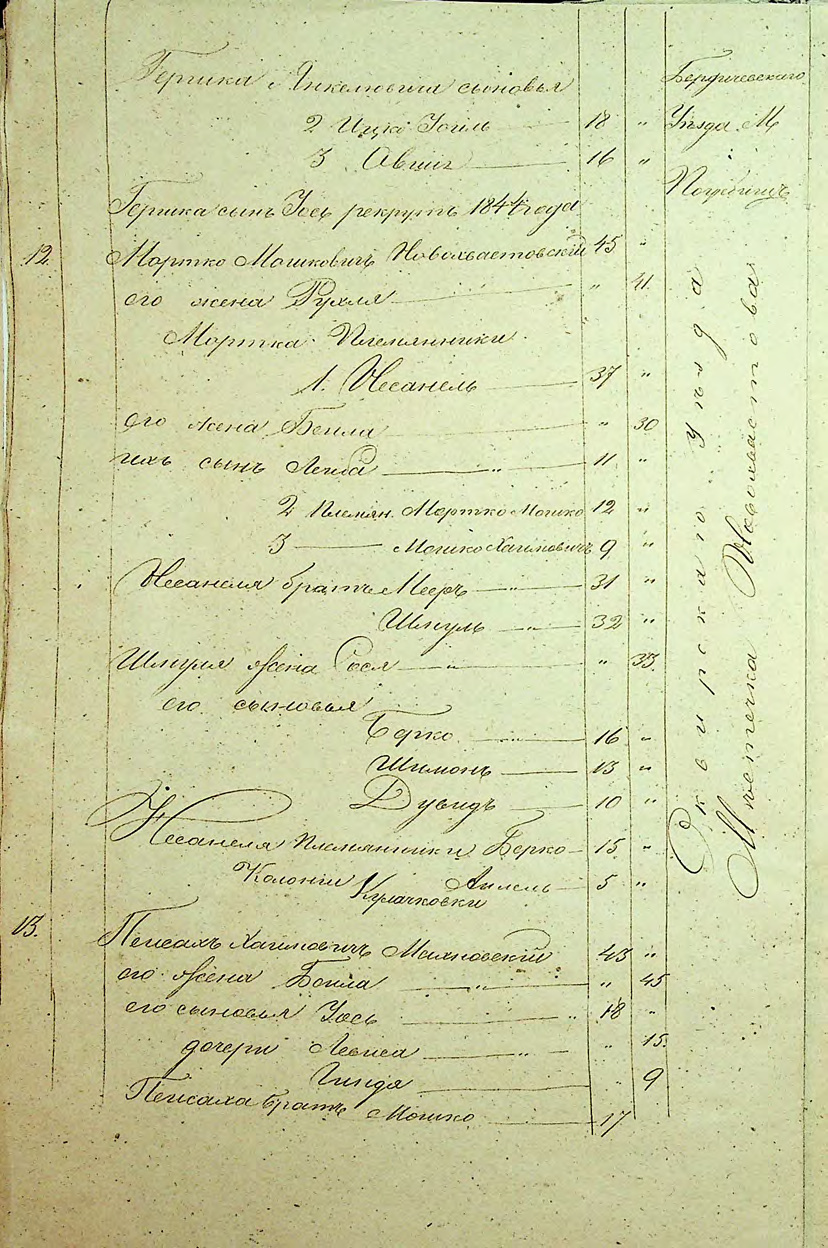 Гершка Янкелевича сыновья Бердичевскаго
2 Ицко Іойль 18 " Уѣзда М
3 Овшій 16 " Погребищъ
Гершка сынъ Іось рекрутъ 1844 года
12. Мортко Мошковичъ Новохвастовскій 45 "
его жена Рухля " 41
Мортка Племянники
1. Несанель 37 "
его жена Бейла " 30
ихъ сынъ Лейба " 11 "
2 Племян. Мортко Мошко 12 "
3 Мошко Хаимовичъ 9 "
Несанеля братъ Мееръ " 31 "
Шмуль " 32 "
Шмуля жена Сося " " 33
его сыновья
Берко " 16 "
Шимонъ 13 "
Дувидъ 10 "
Несанеля Племянники Берко 15 "
5 "
Колоніи Кулачковки
13. Пейсахъ Хаимовичъ Маяновскій 43 "
его жена Бейла " " 45
его сыновья Іось " 18 "
дочери " " 15
Гинда " 9
Пейсаха братъ Мошко 17
Сквирскаго уѣзда
Мѣстечка Новохвастова